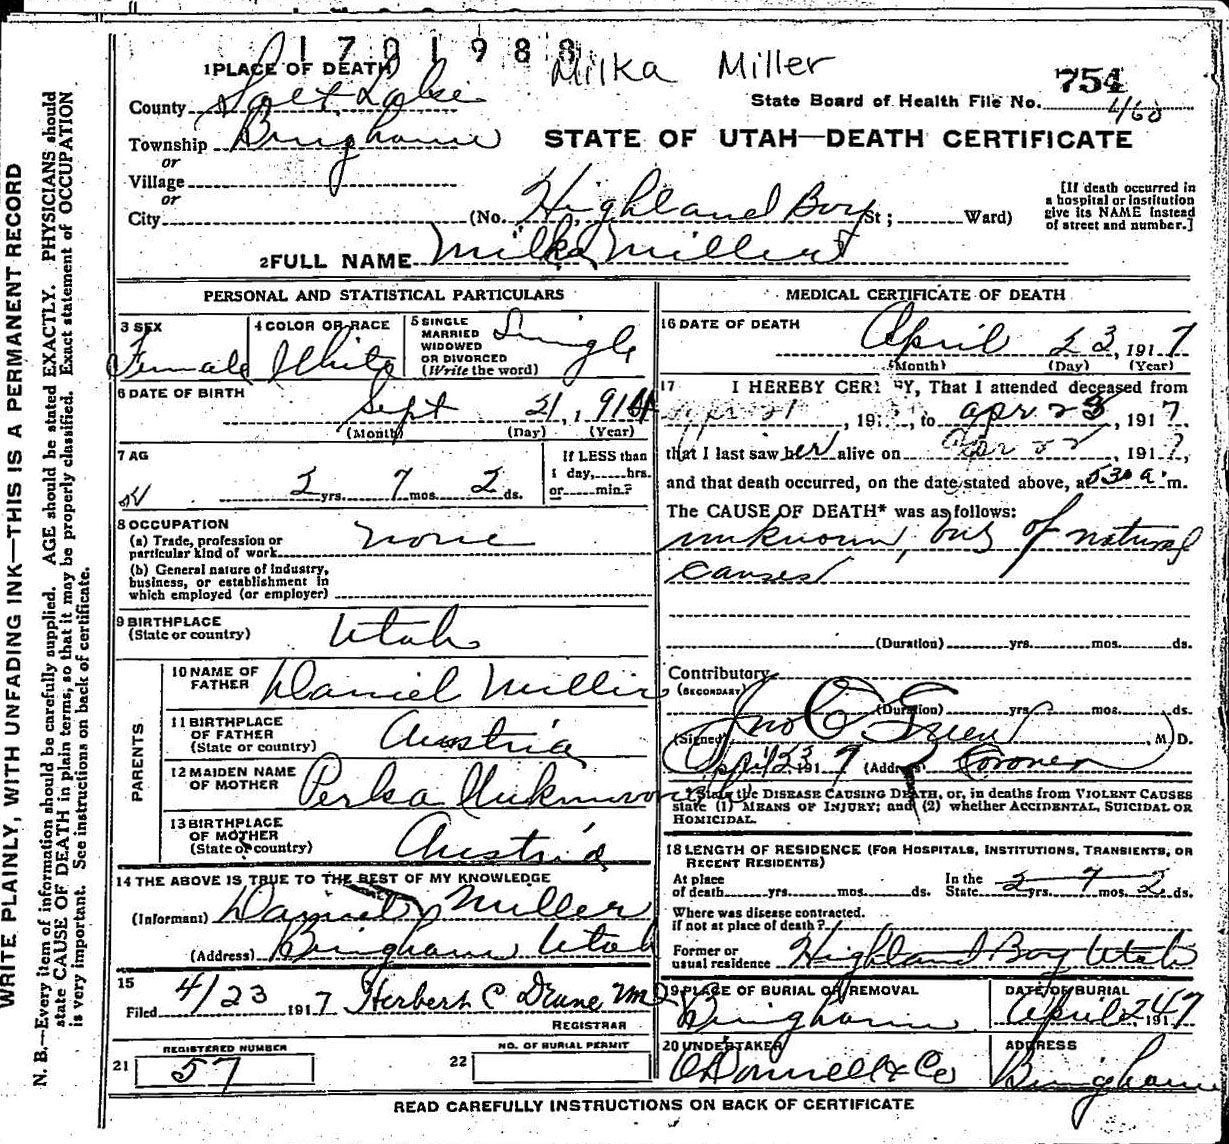 1701988
Milka Miller
754
1 PLACE OF DEATH
State Board of Health File No. 460
County Salt Lake
Township Bingham
STATE OF UTAH—DEATH CERTIFICATE
or
Village
or
City (No. Highland Boy St; Ward)
[If death occurred in
a hospital or institution
give its NAME instead
of street and number.]
2 FULL NAME Milka Miller
PERSONAL AND STATISTICAL PARTICULARS
3 SEX
Female
4 COLOR OR RACE
White
5 SINGLE
MARRIED
WIDOWED
OR DIVORCED
(Write the word)
Single
6 DATE OF BIRTH
Sept 21, 1914
(Month) (Day) (Year)
7 AG
2 yrs. 7 mos. 2 ds.
If LESS than
1 day, hrs.
or min.?
8 OCCUPATION
(a) Trade, profession or
particular kind of work none
(b) General nature of industry,
business, or establishment in
which employed (or employer)
9 BIRTHPLACE
(State or country) Utah
PARENTS
10 NAME OF
FATHER Daniel Miller
11 BIRTHPLACE
OF FATHER
(State or country) Austria
12 MAIDEN NAME
OF MOTHER Perka
13 BIRTHPLACE
OF MOTHER
(State or country) Austria
14 THE ABOVE IS TRUE TO THE BEST OF MY KNOWLEDGE
(Informant) Daniel Miller
(Address) Bingham Utah
15
Filed 4/23 1917 Herbert C Deane MD
REGISTRAR
21 REGISTERED NUMBER
57
22 NO. OF BURIAL PERMIT
MEDICAL CERTIFICATE OF DEATH
16 DATE OF DEATH
April 23, 1917
(Month) (Day) (Year)
17 I HEREBY CER Y, That I attended deceased from
Apr 21, 19 , to Apr 23, 1917
that I last saw her alive on Apr 22, 1917,
and that death occurred, on the date stated above, a 530 a. m.
The CAUSE OF DEATH* was as follows:
unknown, but of natural
causes
(Duration) yrs. mos. ds.
Contributory
(SECONDARY)
(Duration) yrs. mos. ds.
(Signed) Jno C Green, M D.
4/23 1917 (Address) Coroner
State the DISEASE CAUSING DEATH, or, in deaths from VIOLENT CAUSES
state (1) MEANS OF INJURY; and (2) whether ACCIDENTAL, SUICIDAL OR
HOMICIDAL.
18 LENGTH OF RESIDENCE (FOR HOSPITALS, INSTITUTIONS, TRANSIENTS, OR
RECENT RESIDENTS)
At place
of death yrs. mos. ds.
In the
State 2 yrs. 7 mos. 2 ds.
Where was disease contracted.
if not at place of death?
Former or
usual residence Highland Boy Utah
19 PLACE OF BURIAL OR REMOVAL
Bingham
DATE OF BURIAL
April 24 1917
20 UNDERTAKER
O'Donnell & Co
ADDRESS
Bingham
READ CAREFULLY INSTRUCTIONS ON BACK OF CERTIFICATE
WRITE PLAINLY, WITH UNFADING INK—THIS IS A PERMANENT RECORD
N. B.—Every item of information should be carefully supplied. AGE should be stated EXACTLY. PHYSICIANS should
state CAUSE OF DEATH in plain terms, so that it may be properly classified. Exact statement of OCCUPATION
is very important. See instructions on back of certificate.